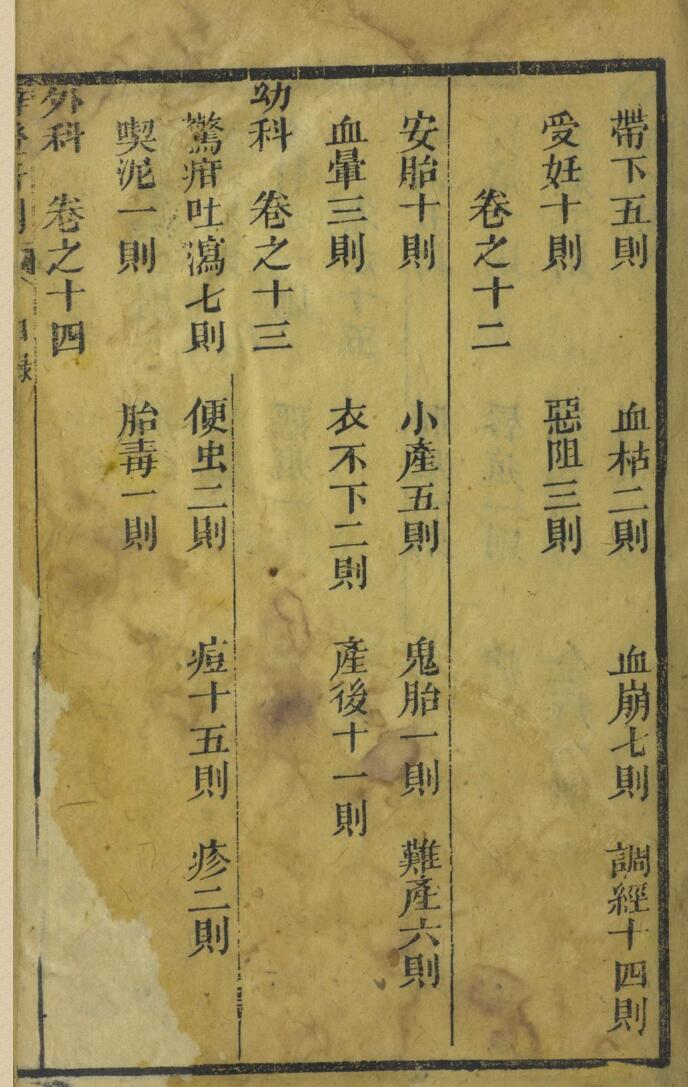 帶下五則 血枯二則 血崩七則 調經十四則
受妊十則 惡阻三則
卷之十二
安胎十則 小產五則 鬼胎一則 難產六則
血暈三則 衣不下二則 產後十一則
幼科 卷之十三
驚疳吐瀉七則 便虫二則 痘十五則 疹二則
喫泥一則 胎毒一則
外科 卷之十四
目錄